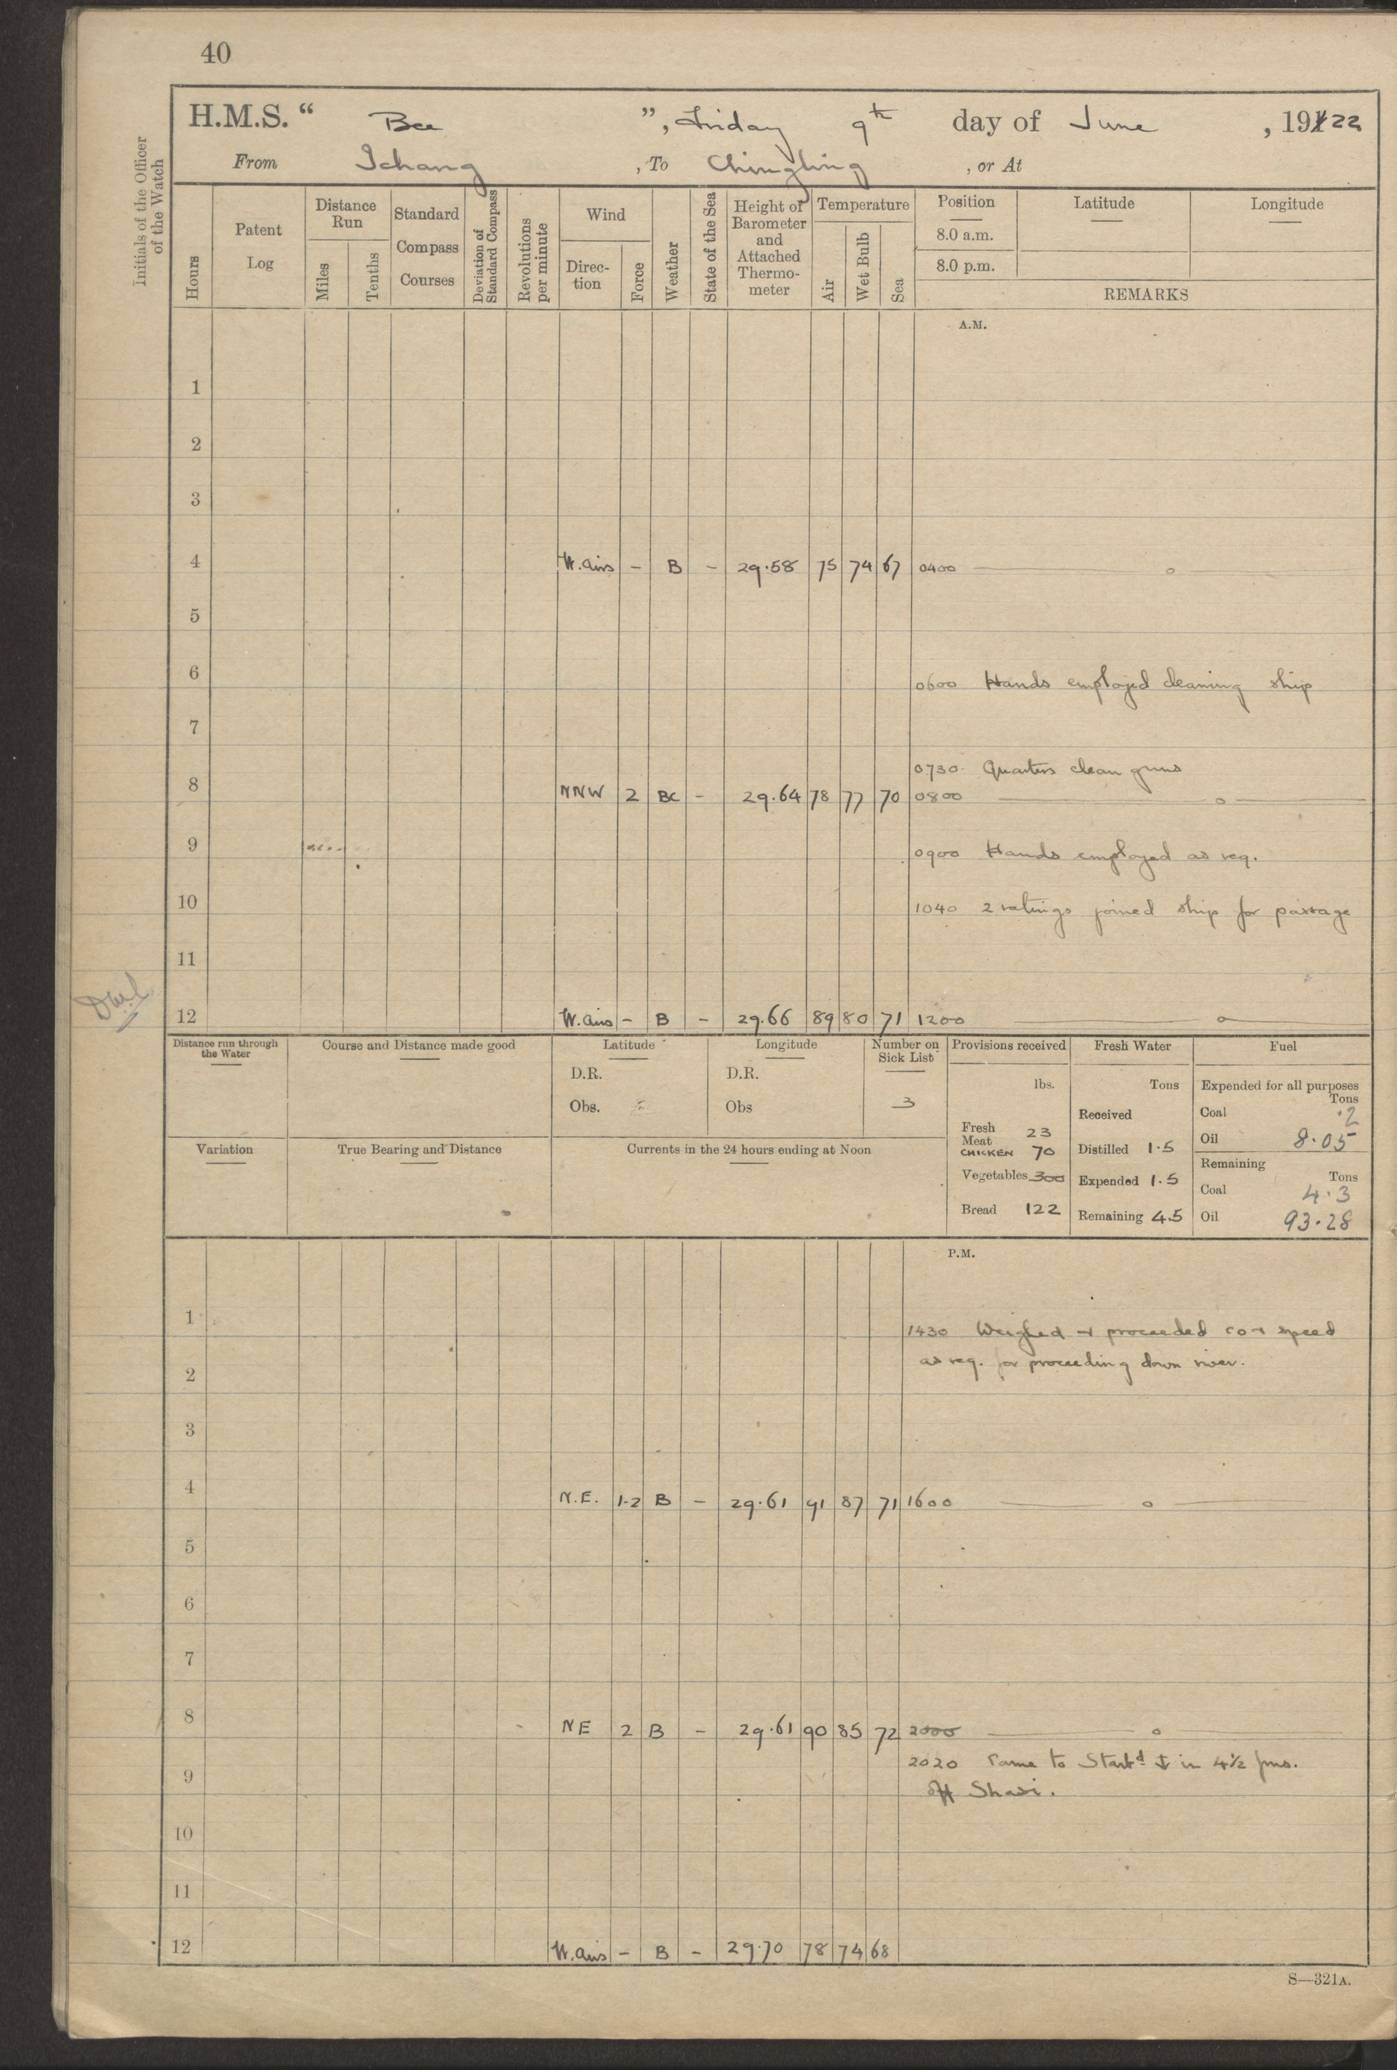 40
H.M.S. “ Bee ”, Friday 9th day of June , 19122
From Ichang , To Chingling , or At
Initials of the Officer of the Watch
Hours
Patent Log
Distance Run
Miles
Tenths
Standard Compass Courses
Deviation of Standard Compass
Revolutions per minute
Wind
Direc-tion
Force
Weather
State of the Sea
Height of Barometer and Attached Thermo-meter
Temperature
Air
Wet Bulb
Sea
Position
8.0 a.m.
8.0 p.m.
Latitude
Longitude
REMARKS
A.M.
1
2
3
4 W. airs - B - 29.58 75 74 67 0400
5
6 0600 Hands employed cleaning ship
7
0730 Quarters clean guns
8 NNW 2 BC - 29.64 78 77 70 0800
9 0900 Hands employed as req.
10 1040 2 ratings joined ship for passage
11
12 W. airs - B - 29.66 89 80 71 1200
Distance run through the Water
Course and Distance made good
Latitude
D.R.
Obs.
Longitude
D.R.
Obs
Number on Sick List
3
Provisions received
lbs.
Fresh Meat 23
CHICKEN 70
Vegetables 300
Bread 122
Fresh Water
Tons
Received
Distilled 1.5
Expended 1.5
Remaining 4.5
Fuel
Expended for all purposes
Tons
Coal .2
Oil 8.05
Remaining
Tons
Coal 4.3
Oil 93.28
Variation
True Bearing and Distance
Currents in the 24 hours ending at Noon
P.M.
1 1430 Weighed & proceeded co & speed
as req. for proceeding down river.
2
3
4 N.E. 1-2 B - 29.61 91 87 71 1600
5
6
7
8 NE 2 B - 29.61 90 85 72 2000
2020 Came to Starbd ⚓ in 4½ fms.
9 off Shasi.
10
11
12 W. airs - B - 29.70 78 74 68
S—321A.